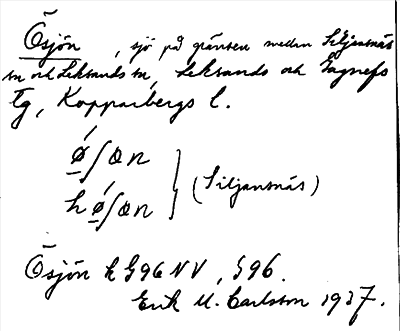 Ösjön, sjö på gränsen mellan Siljansnäs
sn och Leksands sn, Leksands och Gagnefs
tg, Kopparbergs l.
ǿ̱ʃøn
hǿ̱ʃøn } (Siljansnäs)
Ösjön k G96 NV, § 96.
Erik M. Carlsson 1937.